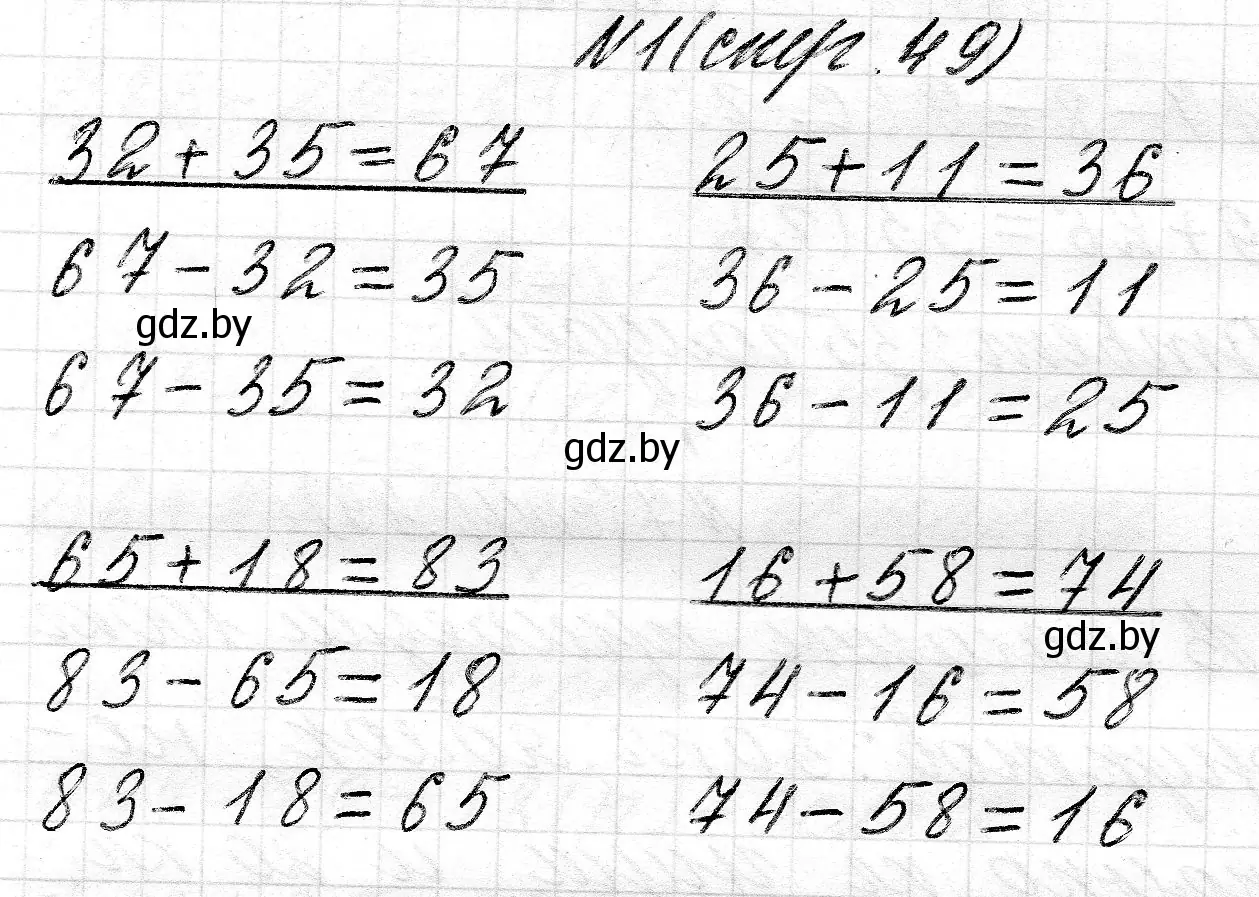 N1(стр. 49)
32+35=67
67-32=35
67-35=32
25+11=36
36-25=11
36-11=25
65+18=83
83-65=18
83-18=65
16+58=74
74-16=58
74-58=16
gdz.by
gdz.by
gdz.by